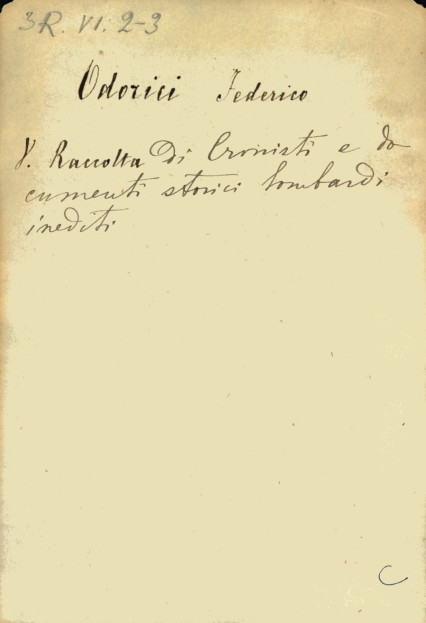 3R. VI. 2-3
Odorici Federico
V. Raccolta Di Cronisti e do
cumenti storici lombardi
inediti
C